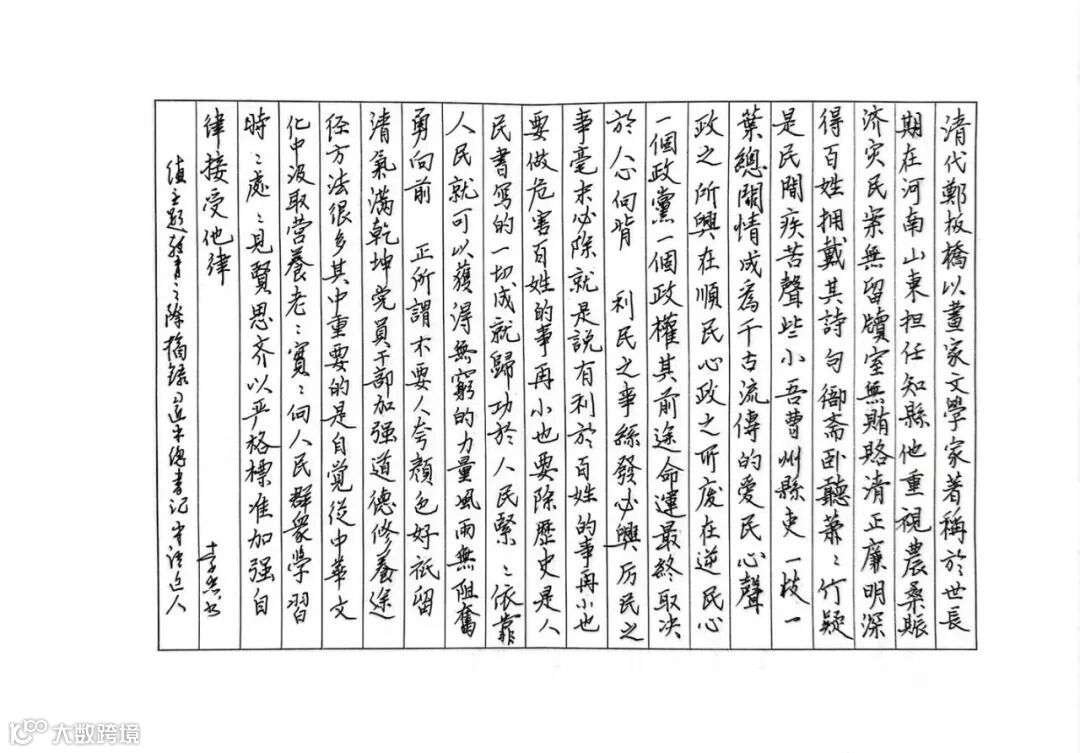 清代鄭板橋以畫家文學家著稱於世長
期在河南山東担任知縣他重視農桑賑
济灾民案無留牘室無賄賂清正廉明深
得百姓拥戴其詩句衙斋卧聽萧〻竹疑
是民間疾苦聲些小吾曹州縣吏一枝一
葉總關情成爲千古流傳的爱民心聲
政之所興在順民心政之所废在逆民心
一個政黨一個政權其前途命運最終取决
於人心向背 利民之事絲發必興厉民之
事毫末必除就是説有利於百姓的事再小也
要做危害百姓的事再小也要除歷史是人
民書寫的一切成就歸功於人民緊〻依靠
人民就可以獲得無窮的力量風雨無阻奮
勇向前 正所謂不要人夸顔色好衹留
清氣滿乾坤党員干部加强道德修養途
径方法很多其中重要的是自觉從中華文
化中汲取营養老〻實〻向人民群衆學習
時〻處〻見賢思齐以严格標准加强自
律接受他律